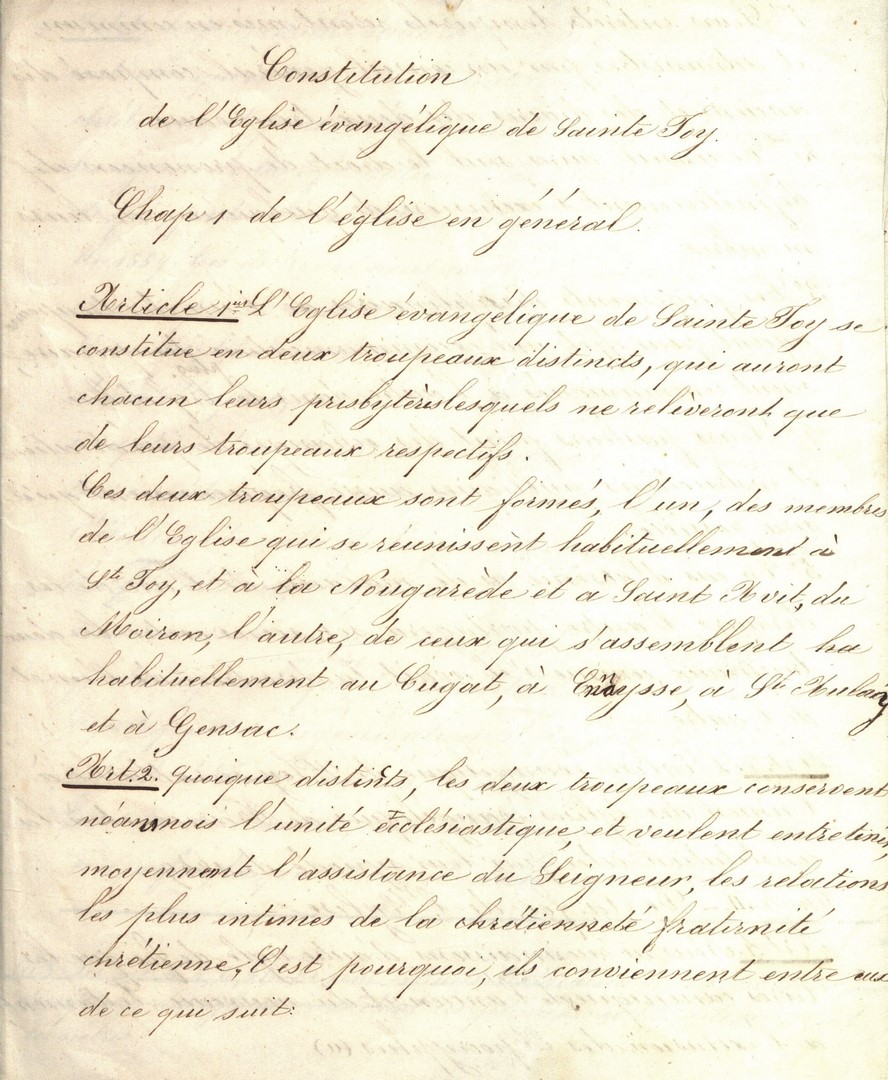 Constitution
de l'Eglise évangélique de Sainte Foy.
Chap 1 de l'église en général.
Article 1ier L'Eglise évangélique de Sainte Foy se
constitue en deux troupeaux distincts, qui auront
chacun leurs presbytèrs lesquels ne relèveront que
de leurs troupeaux respectifs.
Ces deux troupeaux sont formés, l'un, des membres
de l'Eglise qui se réunissent habituellement à
Ste Foy, et à la Nougarède et à Saint Avit, du
Moiron, l'autre, de ceux qui s'assemblent ha
habituellement au Cugat, à à St
et à Gensac.
Art. 2. quoique distincts, les deux troupeaux conservent
néanmois l'unité ecclésiastique, et veulent entretenir,
moyennant l'assistance du Seigneur, les relations
les plus intimes de la chrétienneté fraternité
chrétienne, C'est pourquoi, ils conviennent entre eux
de ce qui suit: